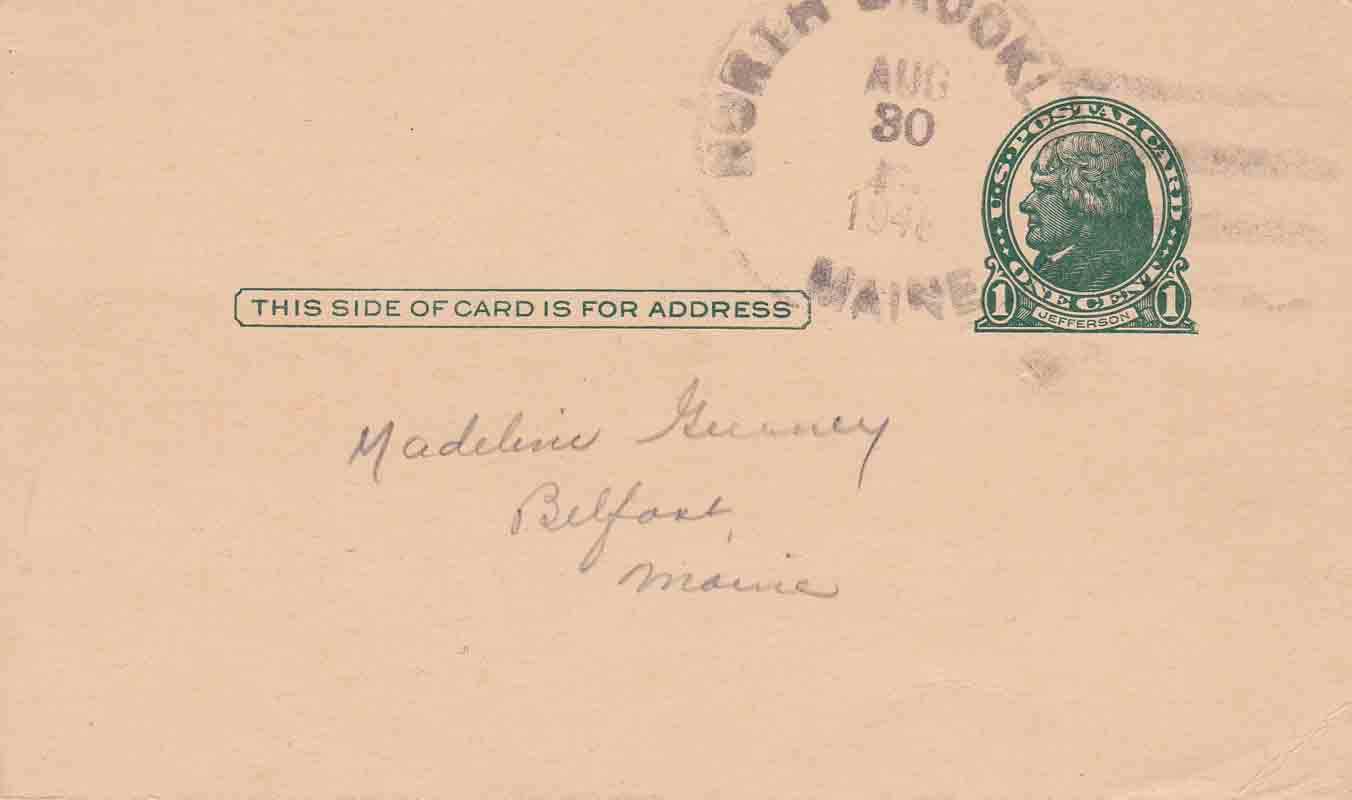 NORTH BROOK
AUG
30
194
MAINE
U.S. POSTAL CARD
ONE CENT
1 JEFFERSON 1
THIS SIDE OF CARD IS FOR ADDRESS
Madeline Gurney
Belfast,
Maine